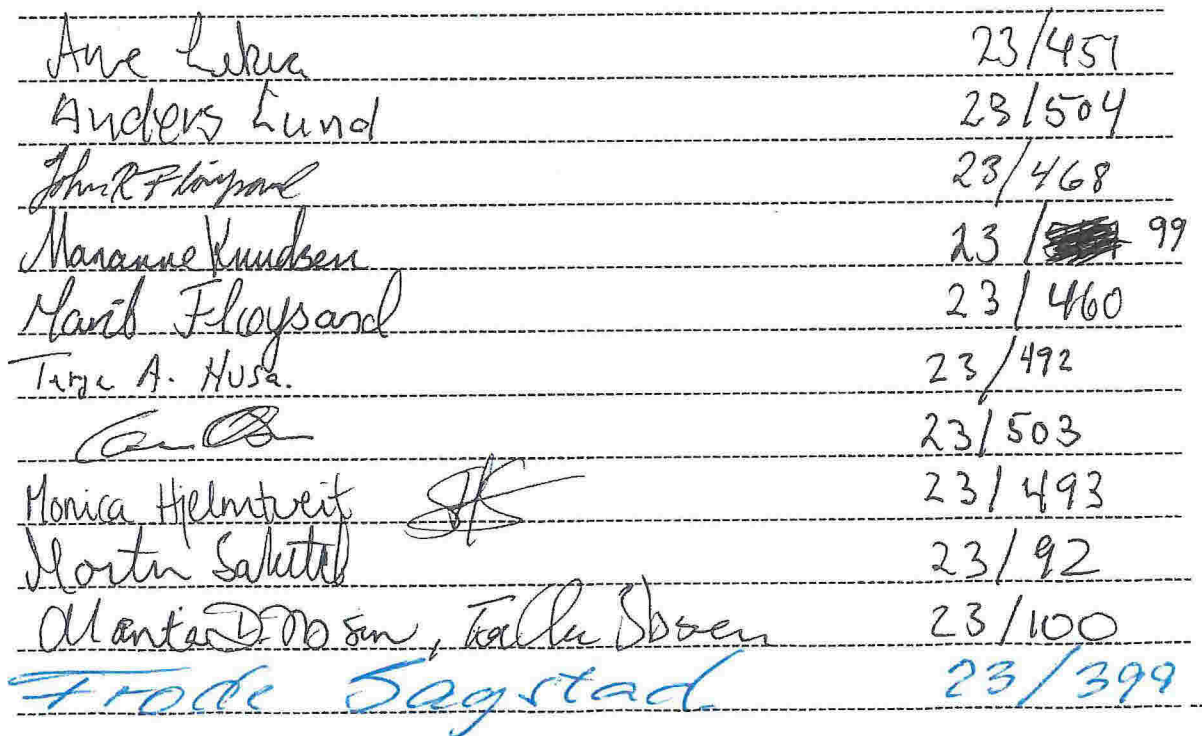 Ave 23/451
Anders Lund 23/504
John R Fløysand 23/468
Marianne Knudsen 23/ 99
Marit Fløysand 23/460
Terje A. Husa. 23/492
23/503
Monica Hjelmtveit 23/493
Morten 23/92
23/100
Frode Sagstad 23/399